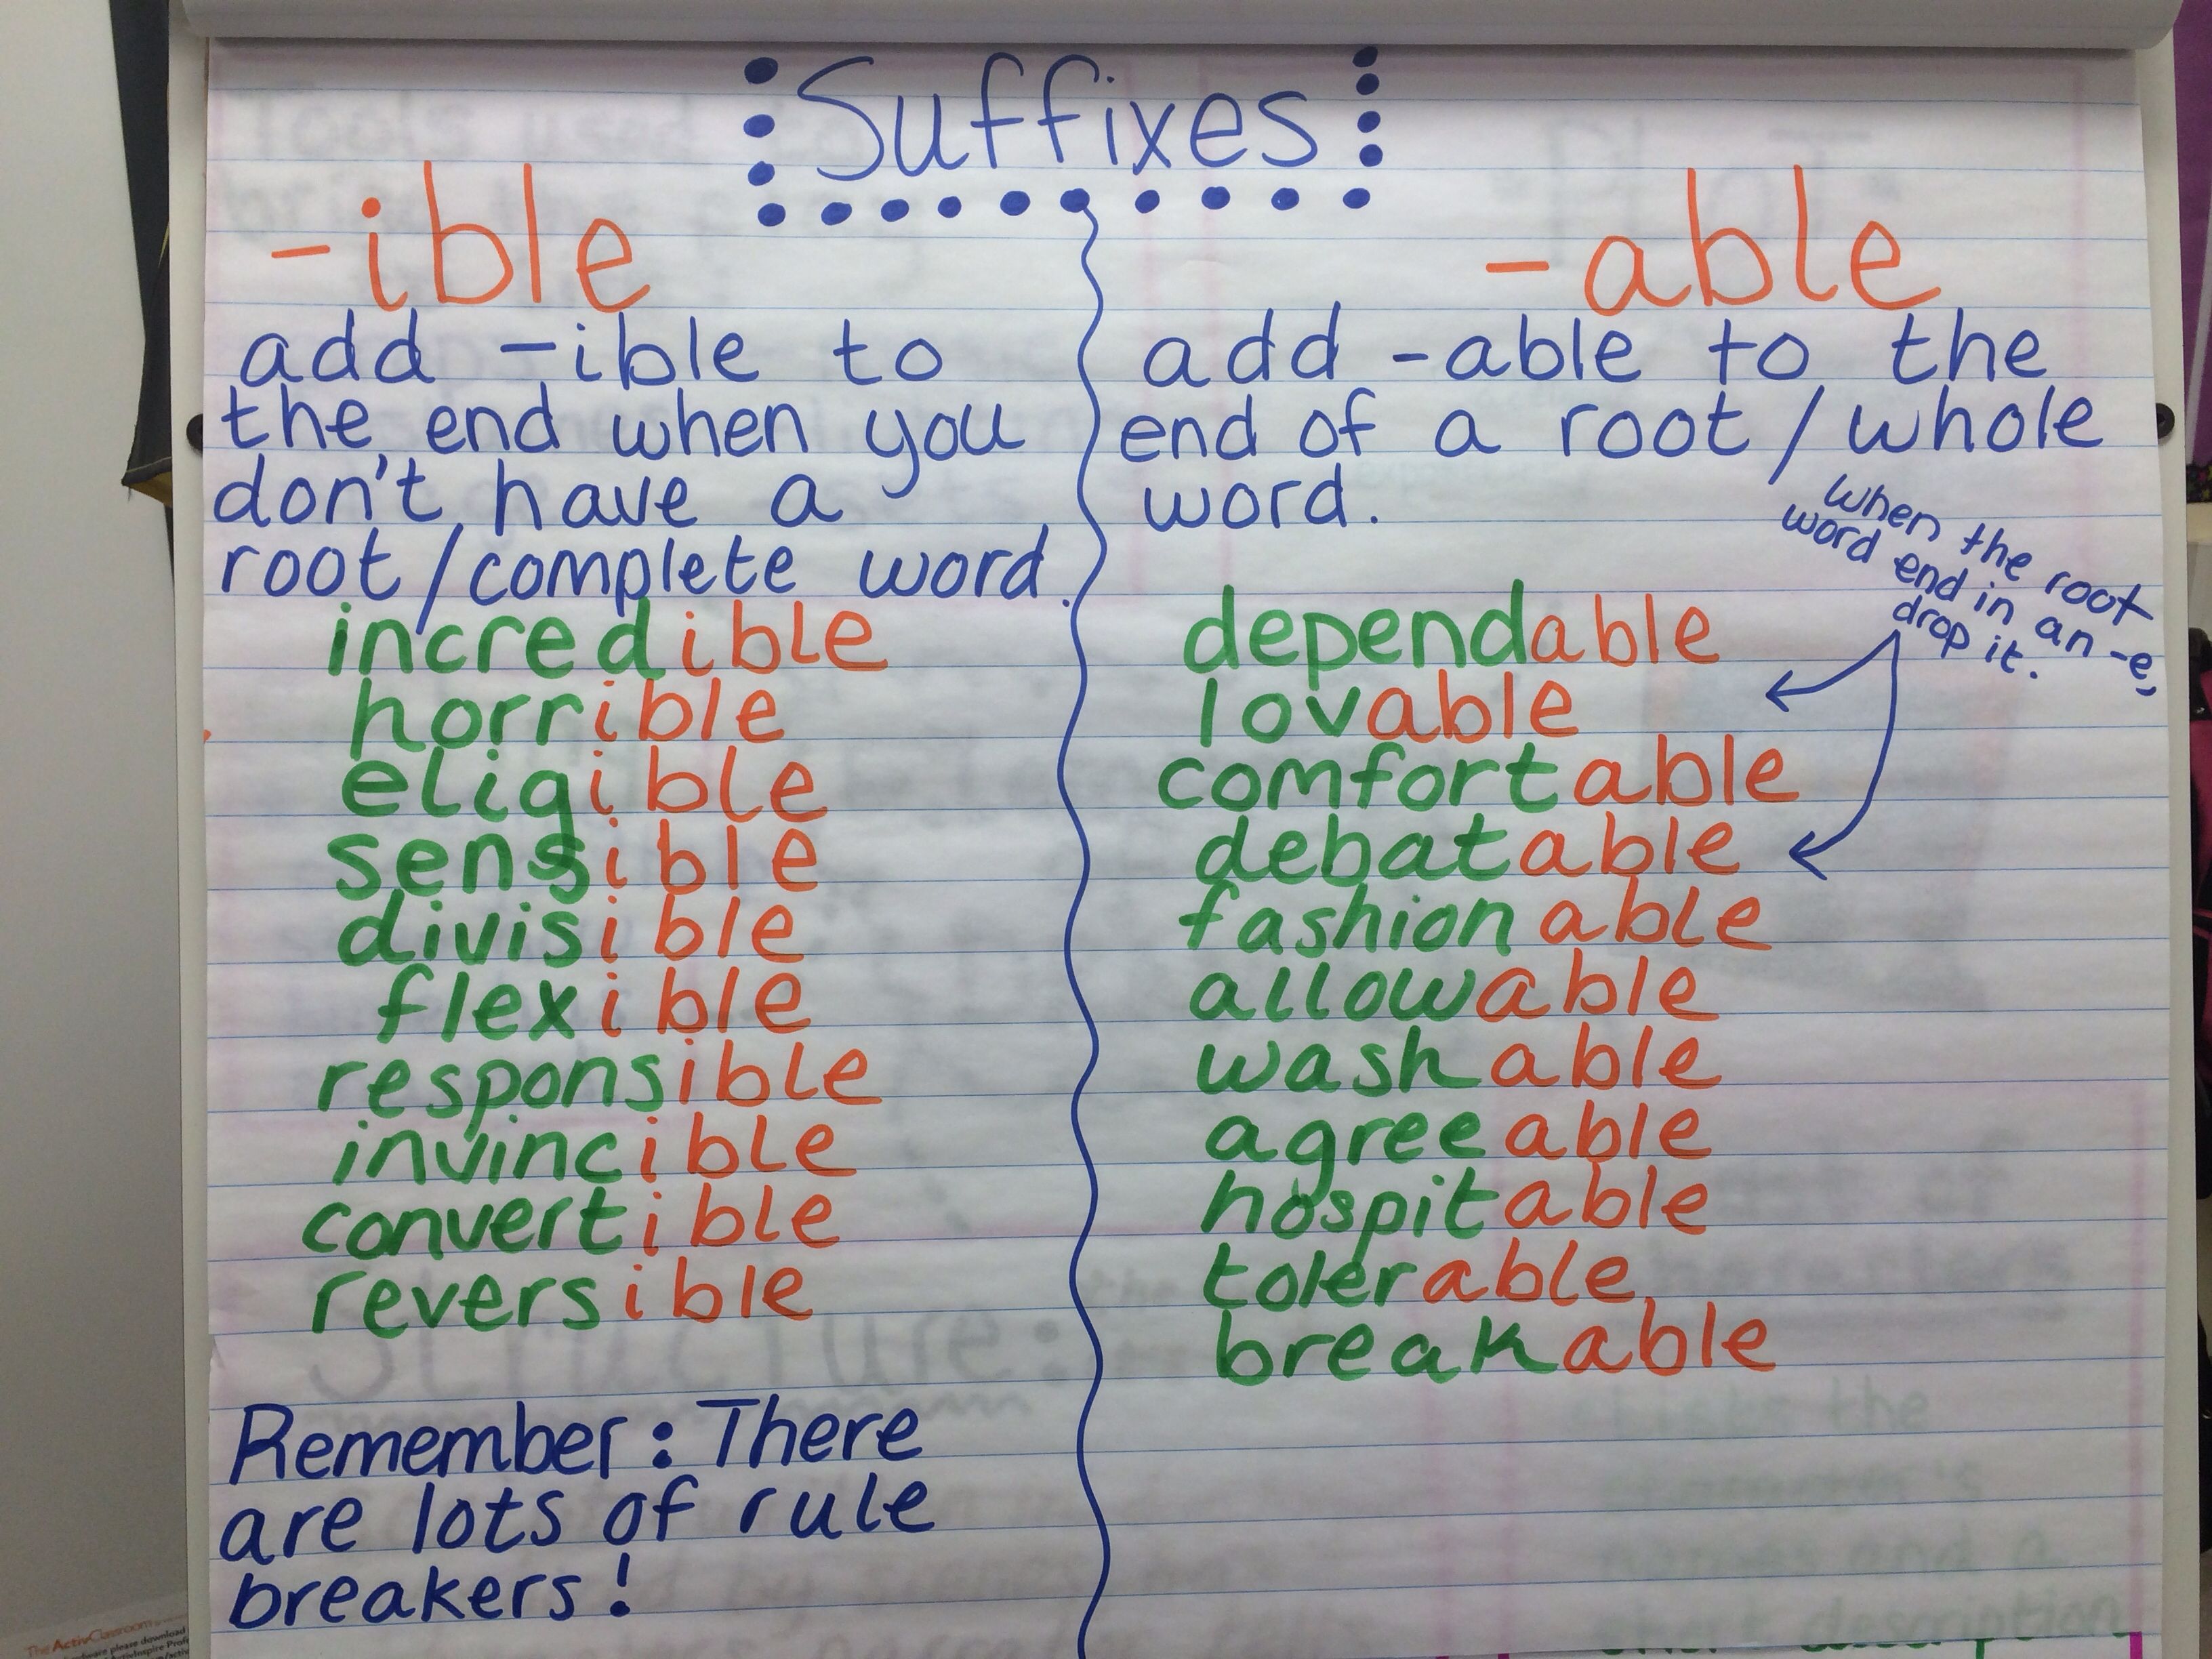 Suffixes
-ible
add -ible to
the end when you
don't have a
root/complete word.
incredible
horrible
eligible
sensible
divisible
flexible
responsible
invincible
convertible
reversible
Remember: There
are lots of rule
breakers!
-able
add -able to the
end of a root/whole
word.
when the root
word end in an -e,
drop it.
dependable
lovable
comfortable
debatable
fashionable
allowable
washable
agreeable
hospitable
tolerable
breakable
Structure:
The ActivClassroom
please download